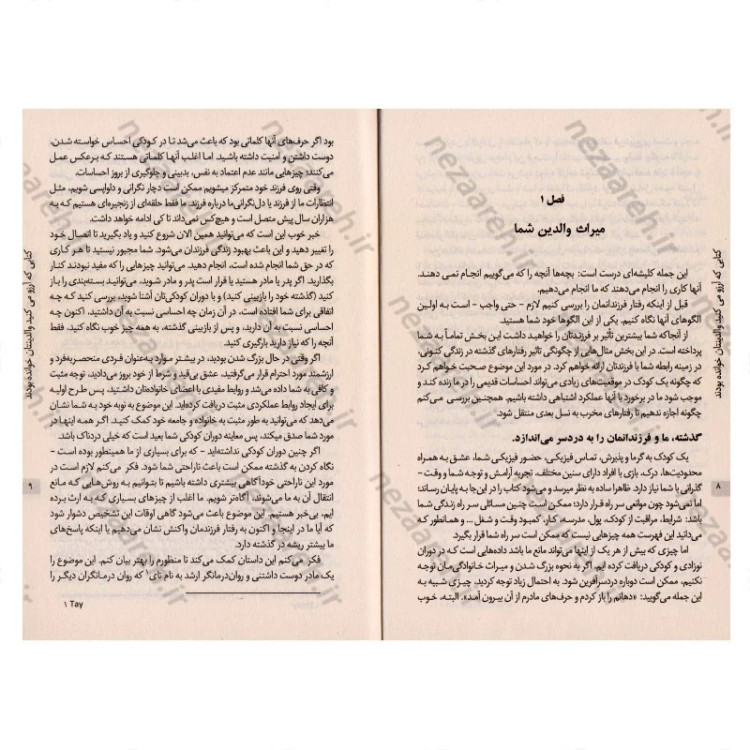 فصل ۱
میراث والدین شما
این جمله کلیشه‌ای درست است: بچه‌ها آنچه را که می‌گوییم انجام نمی دهند.
آنها کاری را انجام می‌دهند که ما انجام می‌دهیم.
قبل از اینکه رفتار فرزندانمان را بررسی کنیم لازم – حتی واجب – است به اولین
الگوهای آنها نگاه کنیم. یکی از این الگوها خود شما هستید.
از آنجا که شما بیشترین تأثیر بر فرزندتان را خواهید داشت این بخش تماماً به شما
پرداخته است. در این بخش مثال‌هایی از چگونگی تاثیر رفتارهای گذشته در زندگی کنونی،
در زمینه رابطه شما با فرزندتان ارائه خواهم کرد. در مورد این موضوع صحبت خواهم کرد
که چگونه یک کودک در موقعیت‌های زیادی می‌تواند احساسات قدیمی را در ما زنده کند و
موجب شود ما در برخورد با آنها عملکرد اشتباهی داشته باشیم. همچنین بررسی می‌کنم
چگونه اجازه ندهیم تا رفتارهای مخرب به نسل بعدی منتقل شود.
گذشته، ما و فرزندانمان را به دردسر می‌اندازد.
یک کودک به گرما و پذیرش، تماس فیزیکی، حضور فیزیکی شما، عشق به همراه
محدودیت‌ها، درک، بازی با افراد دارای سنین مختلف، تجربه آرامش و توجه شما و وقت –
گذرانی با شما نیاز دارد. ظاهرا ساده به نظر میرسد و می‌شود کتاب را در این‌جا به پایان رساند؛
اما نمی‌شود چون موانعی سر راه قرار دارد؛ ممکن است چنین مسائلی سر راه زندگی شما
باشد: شرایط، مراقبت از کودک، پول، مدرسه، کار، کمبود وقت و شغل ... و همانطور که
می‌دانید این فهرست همه چیزهایی نیست که ممکن است سر راه شما قرار بگیرد.
اما چیزی که بیش از هر یک از اینها می‌تواند مانع ما باشد داده‌هایی است که در دوران
نوزادی و کودکی دریافت کرده ایم. اگر به نحوه بزرگ شدن و میراث خانوادگی‌مان توجه
نکنیم، ممکن است دوباره دردسرآفرین شود. به احتمال زیاد توجه کردید، چیزی شبیه به
این جمله می‌گویید: «دهانم را باز کردم و حرف‌های مادرم از آن بیرون آمد». البته، خوب
۸
کتابی که آرزو می کنید والدینتان خوانده بودند
بود اگر حرف‌های آنها کلماتی بود که باعث می‌شد تا در کودکی احساس خواسته شدن،
دوست داشتن و امنیت داشته باشید. اما اغلب آنها کلماتی هستند که برعکس عمل
می‌کنند؛ چیزهایی مانند عدم اعتماد به نفس، بدبینی و جلوگیری از بروز احساسات.
وقتی روی فرزند خود متمرکز میشویم ممکن است دچار نگرانی و دلواپسی شویم، مثل
انتظارات ما از فرزند یا دل‌نگرانی‌ما درباره فرزند. ما فقط حلقه‌ای از زنجیره‌ای هستیم که به
هزاران سال پیش متصل است و هیچ‌کس نمی‌داند تا کی ادامه خواهد داشت.
خبر خوب این است که می‌توانید همین الان شروع کنید و یاد بگیرید تا اتصال خود
را تغییر دهید و این باعث بهبود زندگی فرزندان می‌شود. شما مجبور نیستید تا هر کاری
که در حق شما انجام شده است، انجام دهید. می‌توانید چیزهایی را که مفید نبودند کنار
بگذارید. اگر پدر یا مادر هستید یا قرار است پدر و مادر شوید، می‌توانید بسته‌بندی را باز
کنید (گذشته خود را بازبینی کنید) و با دوران کودکی‌تان آشنا شوید، بررسی کنید که چه
اتفاقی برای شما افتاده است، در آن زمان چه احساسی نسبت به آن داشتید، اکنون چه
احساسی نسبت به آن دارید، و پس از بازبینی گذشته، به همه چیز خوب نگاه کنید، فقط
آنچه را که نیاز دارید بارگیری کنید.
اگر وقتی در حال بزرگ شدن بودید، در بیشتر موارد به‌عنوان فردی منحصربه‌فرد و
ارزشمند مورد احترام قرار می‌گرفتید، عشق بی‌قید و شرط از خود بروز می‌دادید، توجه مثبت
و کافی به شما داده می‌شد و روابط مفیدی با اعضای خانواده‌تان داشتید، پس طرح اولیه
برای ایجاد روابط عملکردی مثبت دریافت کرده‌اید. این موضوع به نوبه خود به شما نشان
می‌دهد که می‌توانید به طور مثبت به خانواده و جامعه خود کمک کنید. اگر همه اینها در
مورد شما صدق میکند، پس معاینه دوران کودکی شما بعید است که خیلی دردناک باشد.
اگر چنین دوران کودکی نداشته‌اید – که برای بسیاری از ما همینطور بوده است –
نگاه کردن به گذشته ممکن است باعث ناراحتی شما شود. فکر می‌کنم لازم است در
مورد این ناراحتی خودآگاهی بیشتری داشته باشیم تا بتوانیم به روش‌هایی که مانع
انتقال آن به ما می‌شوند، آگاه‌تر شویم. ما اغلب از چیزهای بسیاری که به ارث برده
ایم، بی‌خبر هستیم. این موضوع باعث می‌شود گاهی اوقات این تشخیص دشوار شود
که آیا ما در اینجا و اکنون به رفتار فرزندمان واکنش نشان می‌دهیم یا اینکه پاسخ‌های
ما بیشتر ریشه در گذشته دارد.
فکر می‌کنم این داستان کمک می‌کند تا منظورم را بهتر بیان کنم. این موضوع را
یک مادر دوست داشتنی و روان‌درمانگر ارشد به نام تای۱ که روان درمانگران دیگر را
۱ Tay
۹
کتابی که آرزو می کنید والدینتان خوانده بودند
nezaareh.ir
nezaareh.ir
nezaareh.ir
nezaareh.ir
nezaareh.ir
nezaareh.ir